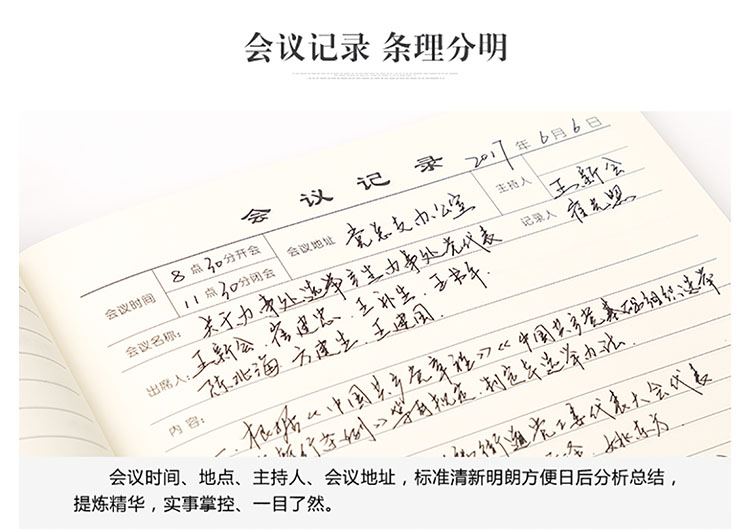 会议记录 条理分明
会议记录 2017年6月6日
会议时间 8点30分开会 会议地址 党总支办公室 主持人 王新会
11点30分闭会 记录人
会议名称: 关于办事处选举产生办事处党代表
出席人: 王新会 崔建忠 王书年
陈北海 王建国
内容:
一、根据《中国共产党章程》《中国共产党基层组织选举
暂行条例》等有关规定,制定本选举办法.
代表大会代表
会议时间、地点、主持人、会议地址,标准清新明朗方便日后分析总结,
提炼精华,实事掌控、一目了然。